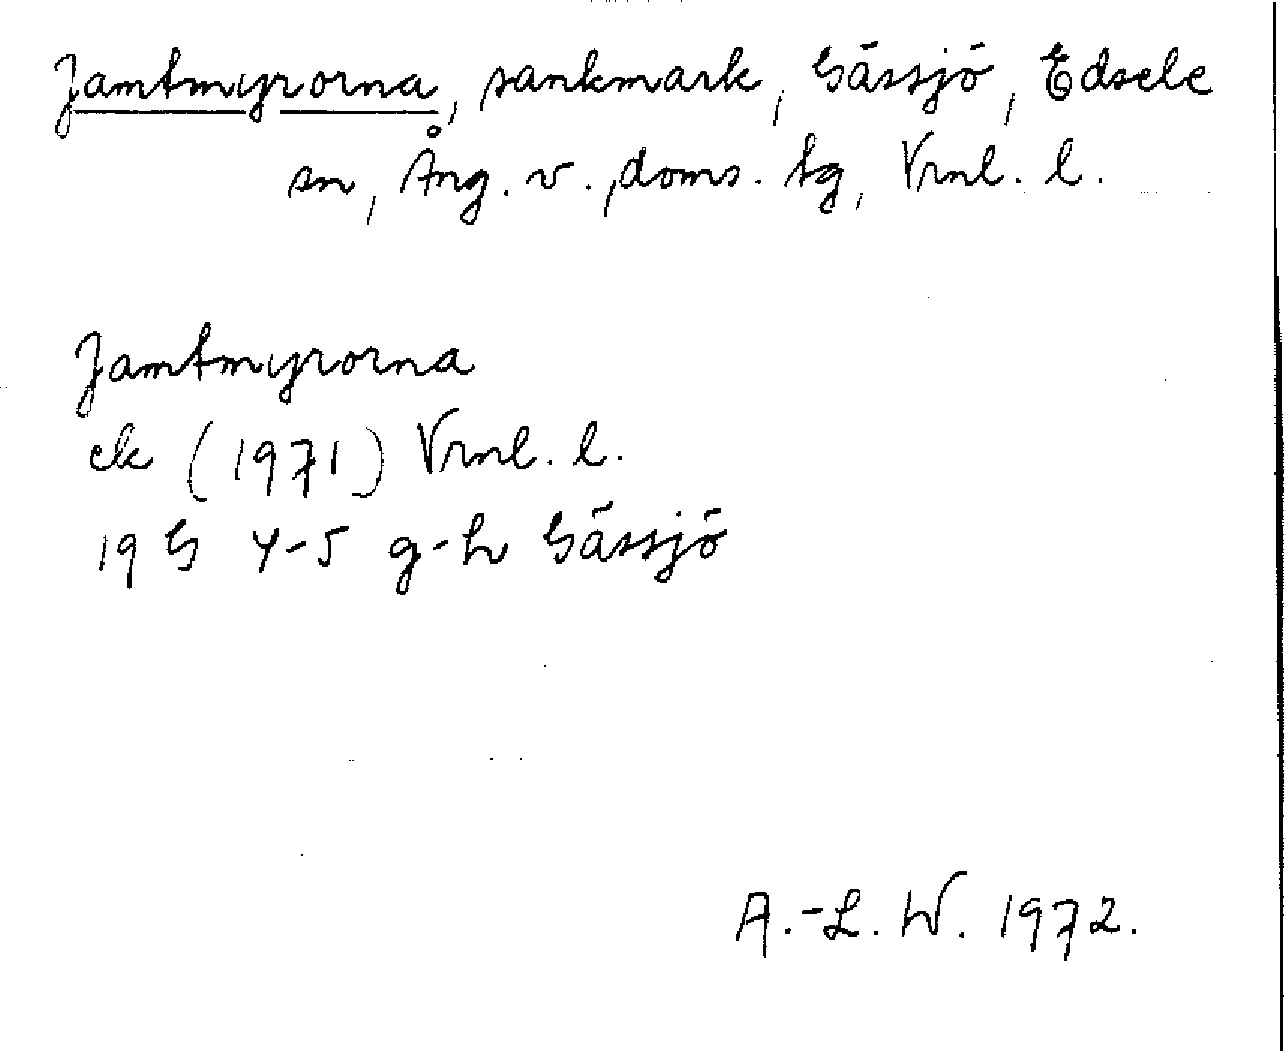 Jamtmyrorna, sankmark, Gässjö, Edsele
sn, Ång. v., doms. tg, Vrnl. l.
Jamtmyrorna
ek (1971) Vrnl. l.
19 G 4-5 g-h Gässjö
A.-L. W. 1972.